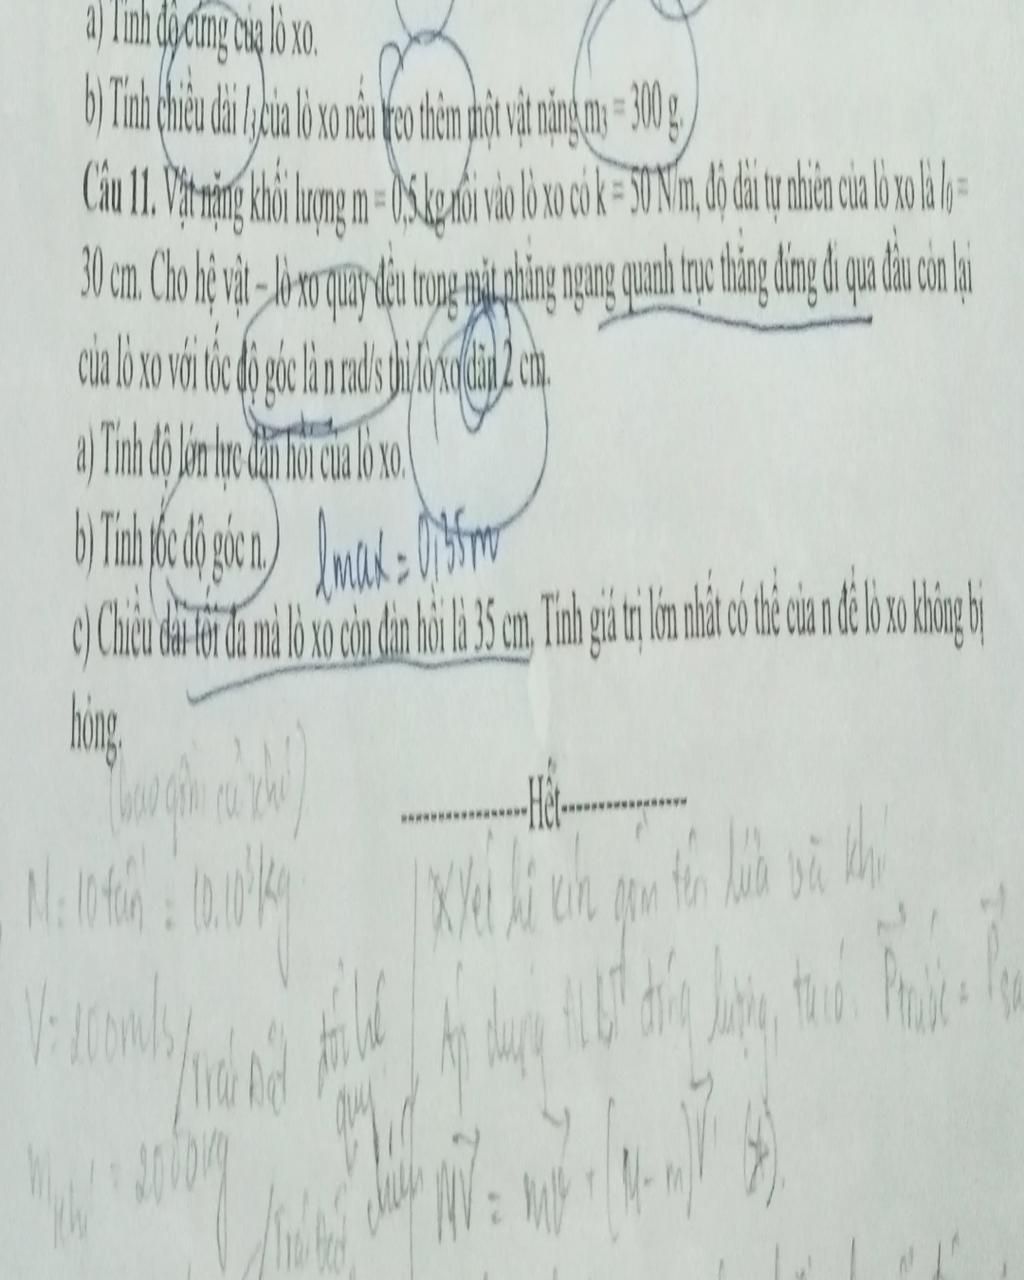 a) Tính độ cứng của lò xo.
b) Tính chiều dài l₃ của lò xo nếu treo thêm một vật nặng m₃ = 300 g.
Câu 11. Vật nặng khối lượng m = 0,5 kg nối vào lò xo có k = 50 N/m, độ dài tự nhiên của lò xo là l₀ =
30 cm. Cho hệ vật – lò xo quay đều trong mặt phẳng ngang quanh trục thẳng đứng đi qua đầu còn lại
của lò xo với tốc độ góc là n rad/s thì lò xo dãn 2 cm.
a) Tính độ lớn lực đàn hồi của lò xo.
b) Tính tốc độ góc n.
lmax = 0,35m
c) Chiều dài tối đa mà lò xo còn đàn hồi là 35 cm. Tính giá trị lớn nhất có thể của n để lò xo không bị
hỏng.
(bao gồm cả khí)
---------------Hết---------------
M = 10 tấn = 10.10³ kg
* Xét hệ kín gồm tên lửa và khí
V = 200m/s /Trái Đất
đổi hệ quy chiếu
Áp dụng ĐLBT động lượng, ta có: P⃗trước = P⃗sa
m khí = 2000kg /Trái Đất
MV⃗ = mv⃗ + (M - m)V⃗' (*).